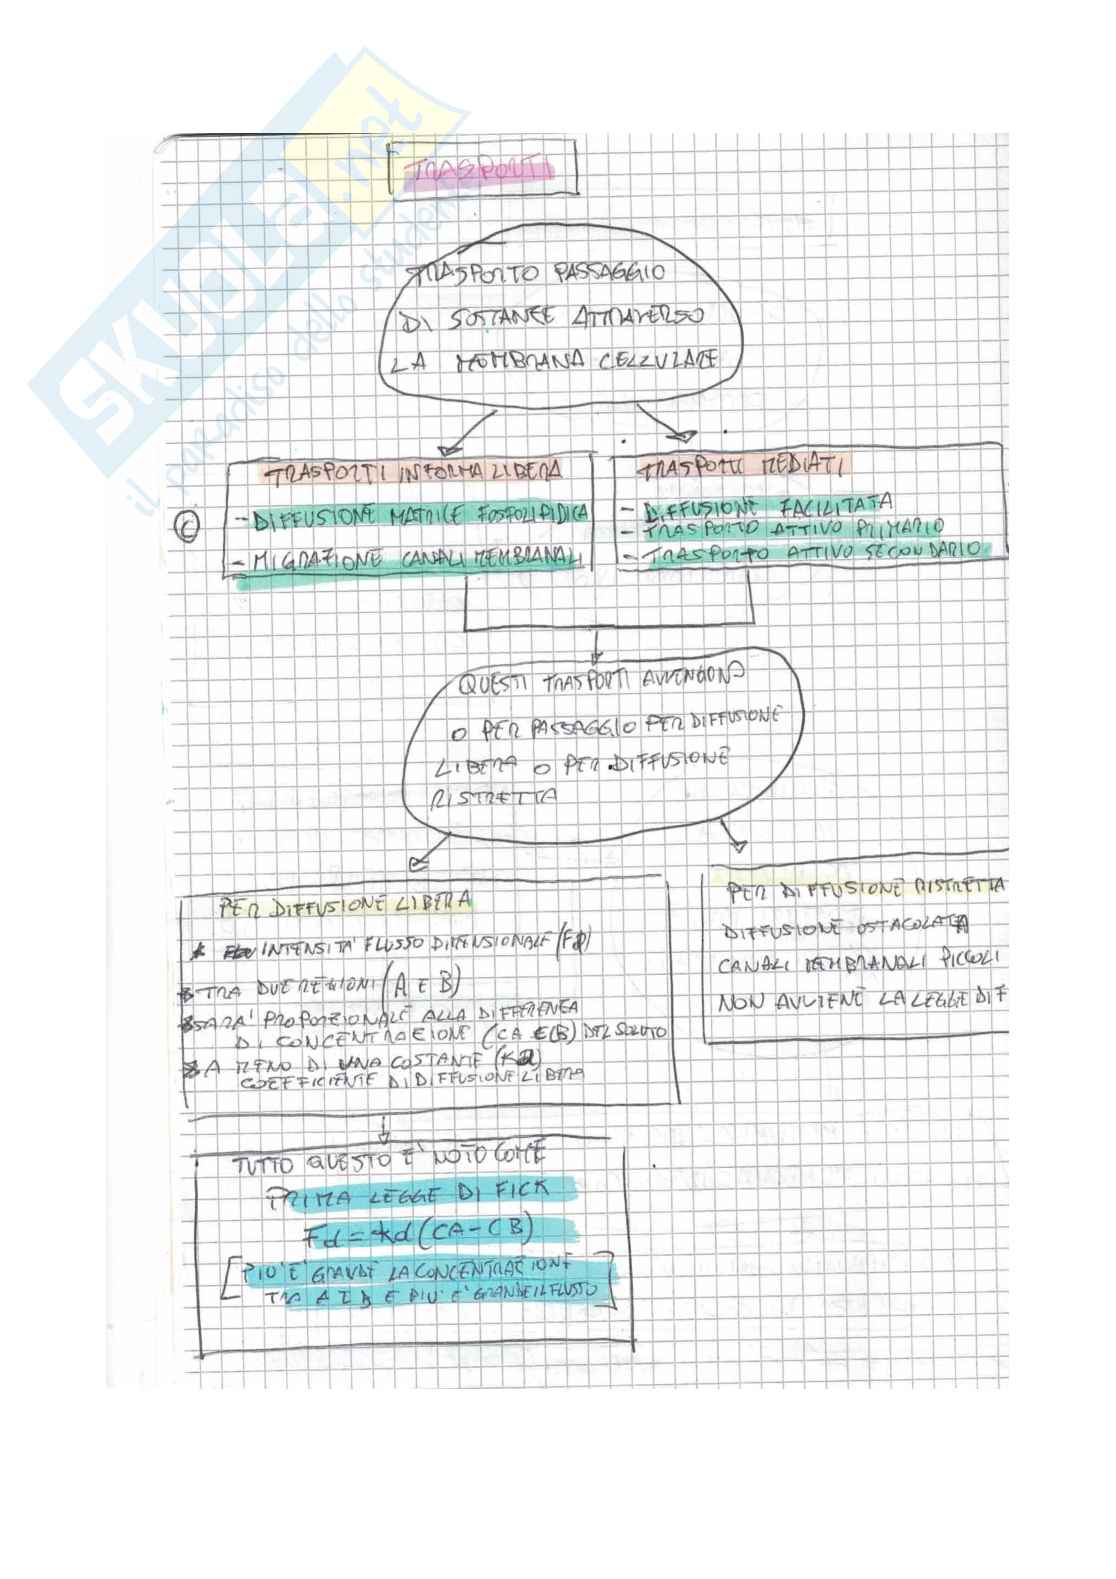 SKUOLA.net
il paradiso dello studente
TRASPORTI
TRASPORTO PASSAGGIO
DI SOSTANZE ATTRAVERSO
LA MEMBRANA CELLULARE
TRASPORTI IN FORMA LIBERA
- DIFFUSIONE MATRICE FOSFOLIPIDICA
- MIGRAZIONE CANALI MEMBRANALI
C
TRASPORTI MEDIATI
- DIFFUSIONE FACILITATA
- TRASPORTO ATTIVO PRIMARIO
- TRASPORTO ATTIVO SECONDARIO
QUESTI TRASPORTI AVVENGONO
O PER PASSAGGIO PER DIFFUSIONE
LIBERA O PER DIFFUSIONE
RISTRETTA
PER DIFFUSIONE LIBERA
* INTENSITA' FLUSSO DIMENSIONALE (FD)
* TRA DUE REGIONI (A E B)
* SARA' PROPORZIONALE ALLA DIFFERENZA
DI CONCENTRAZIONE (CA E CB) DEL SOLUTO
* A MENO DI UNA COSTANTE (KD)
COEFFICIENTE DI DIFFUSIONE LIBERA
PER DIFFUSIONE RISTRETTA
DIFFUSIONE OSTACOLATA
CANALI MEMBRANALI PICCOLI
NON AVVIENE LA LEGGE DI F
TUTTO QUESTO E' NOTO COME
PRIMA LEGGE DI FICK
Fd = kd (CA - CB)
[PIU' E' GRANDE LA CONCENTRAZIONE
TRA A E B E PIU' E' GRANDE IL FLUSSO]